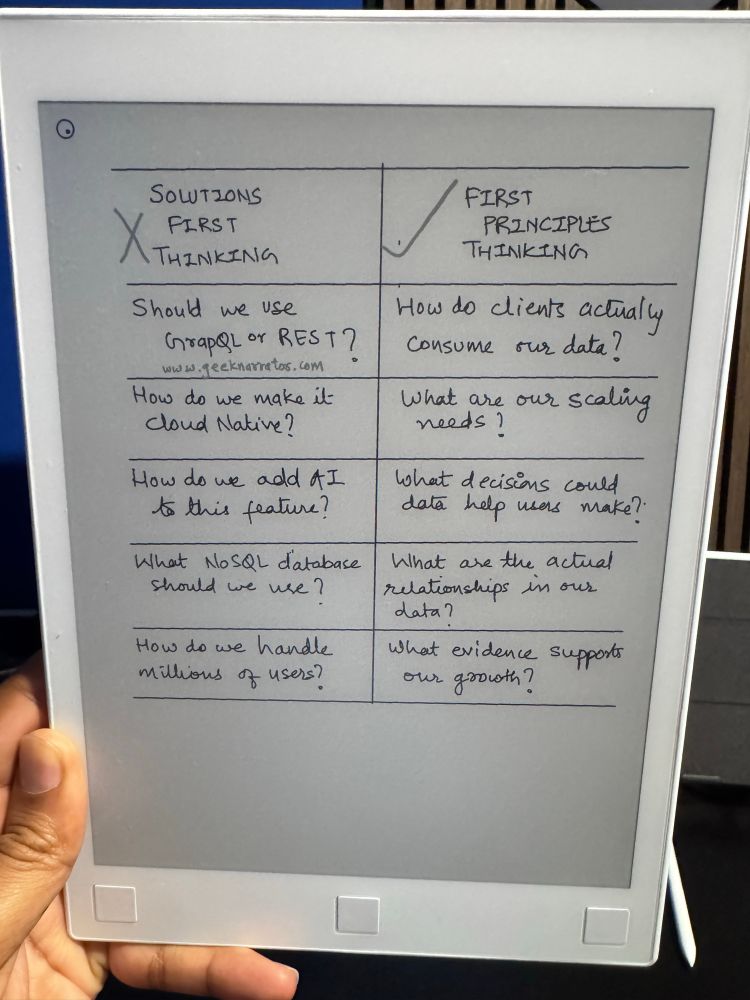 SOLUTIONS
FIRST
THINKING
FIRST
PRINCIPLES
THINKING
Should we use
GrapQL or REST?
www.geeknarrator.com
How do clients actually
consume our data?
How do we make it
Cloud Native?
What are our scaling
needs?
How do we add AI
to this feature?
What decisions could
data help users make?
What NoSQL database
should we use?
What are the actual
relationships in our
data?
How do we handle
millions of users?
What evidence supports
our growth?